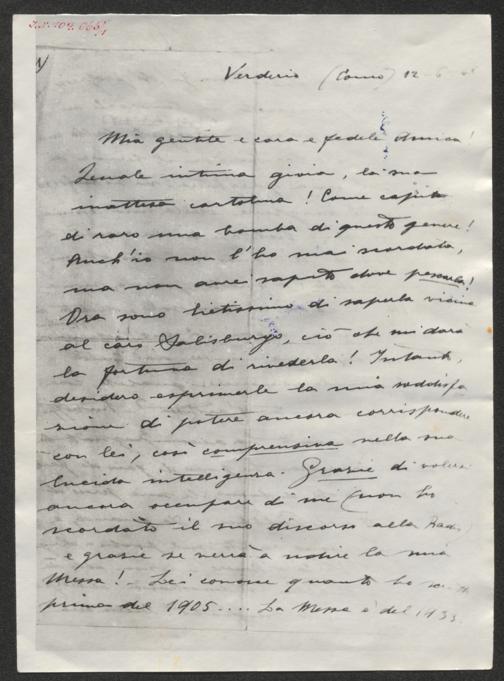 Verderio (Como) 12-6-
Mia gentile e cara e fedele Amica!
Quale intima gioia, la sua
inattesa cartolina! Come capita
di raro una bomba di questo genere!
Anch'io non l'ho mai scordata,
ma non avrei saputo dove pescarla!
Ora sono lietissimo di saperla vicina
al caro Salisburgo, ciò che mi darà
la fortuna di rivederla! Intanto,
desidero esprimerle la mia soddisfa
zione di potere ancora corrispondere
con lei, così comprensiva nella sua
lucida intelligenza. Grazie di volersi
ancora occupare di me (non ho
scordato il suo discorso alla Radio)
e grazie se verrà a udire la mia
Messa! - Lei conosce quanto ho
prima del 1905.... La Messa è del 1933.